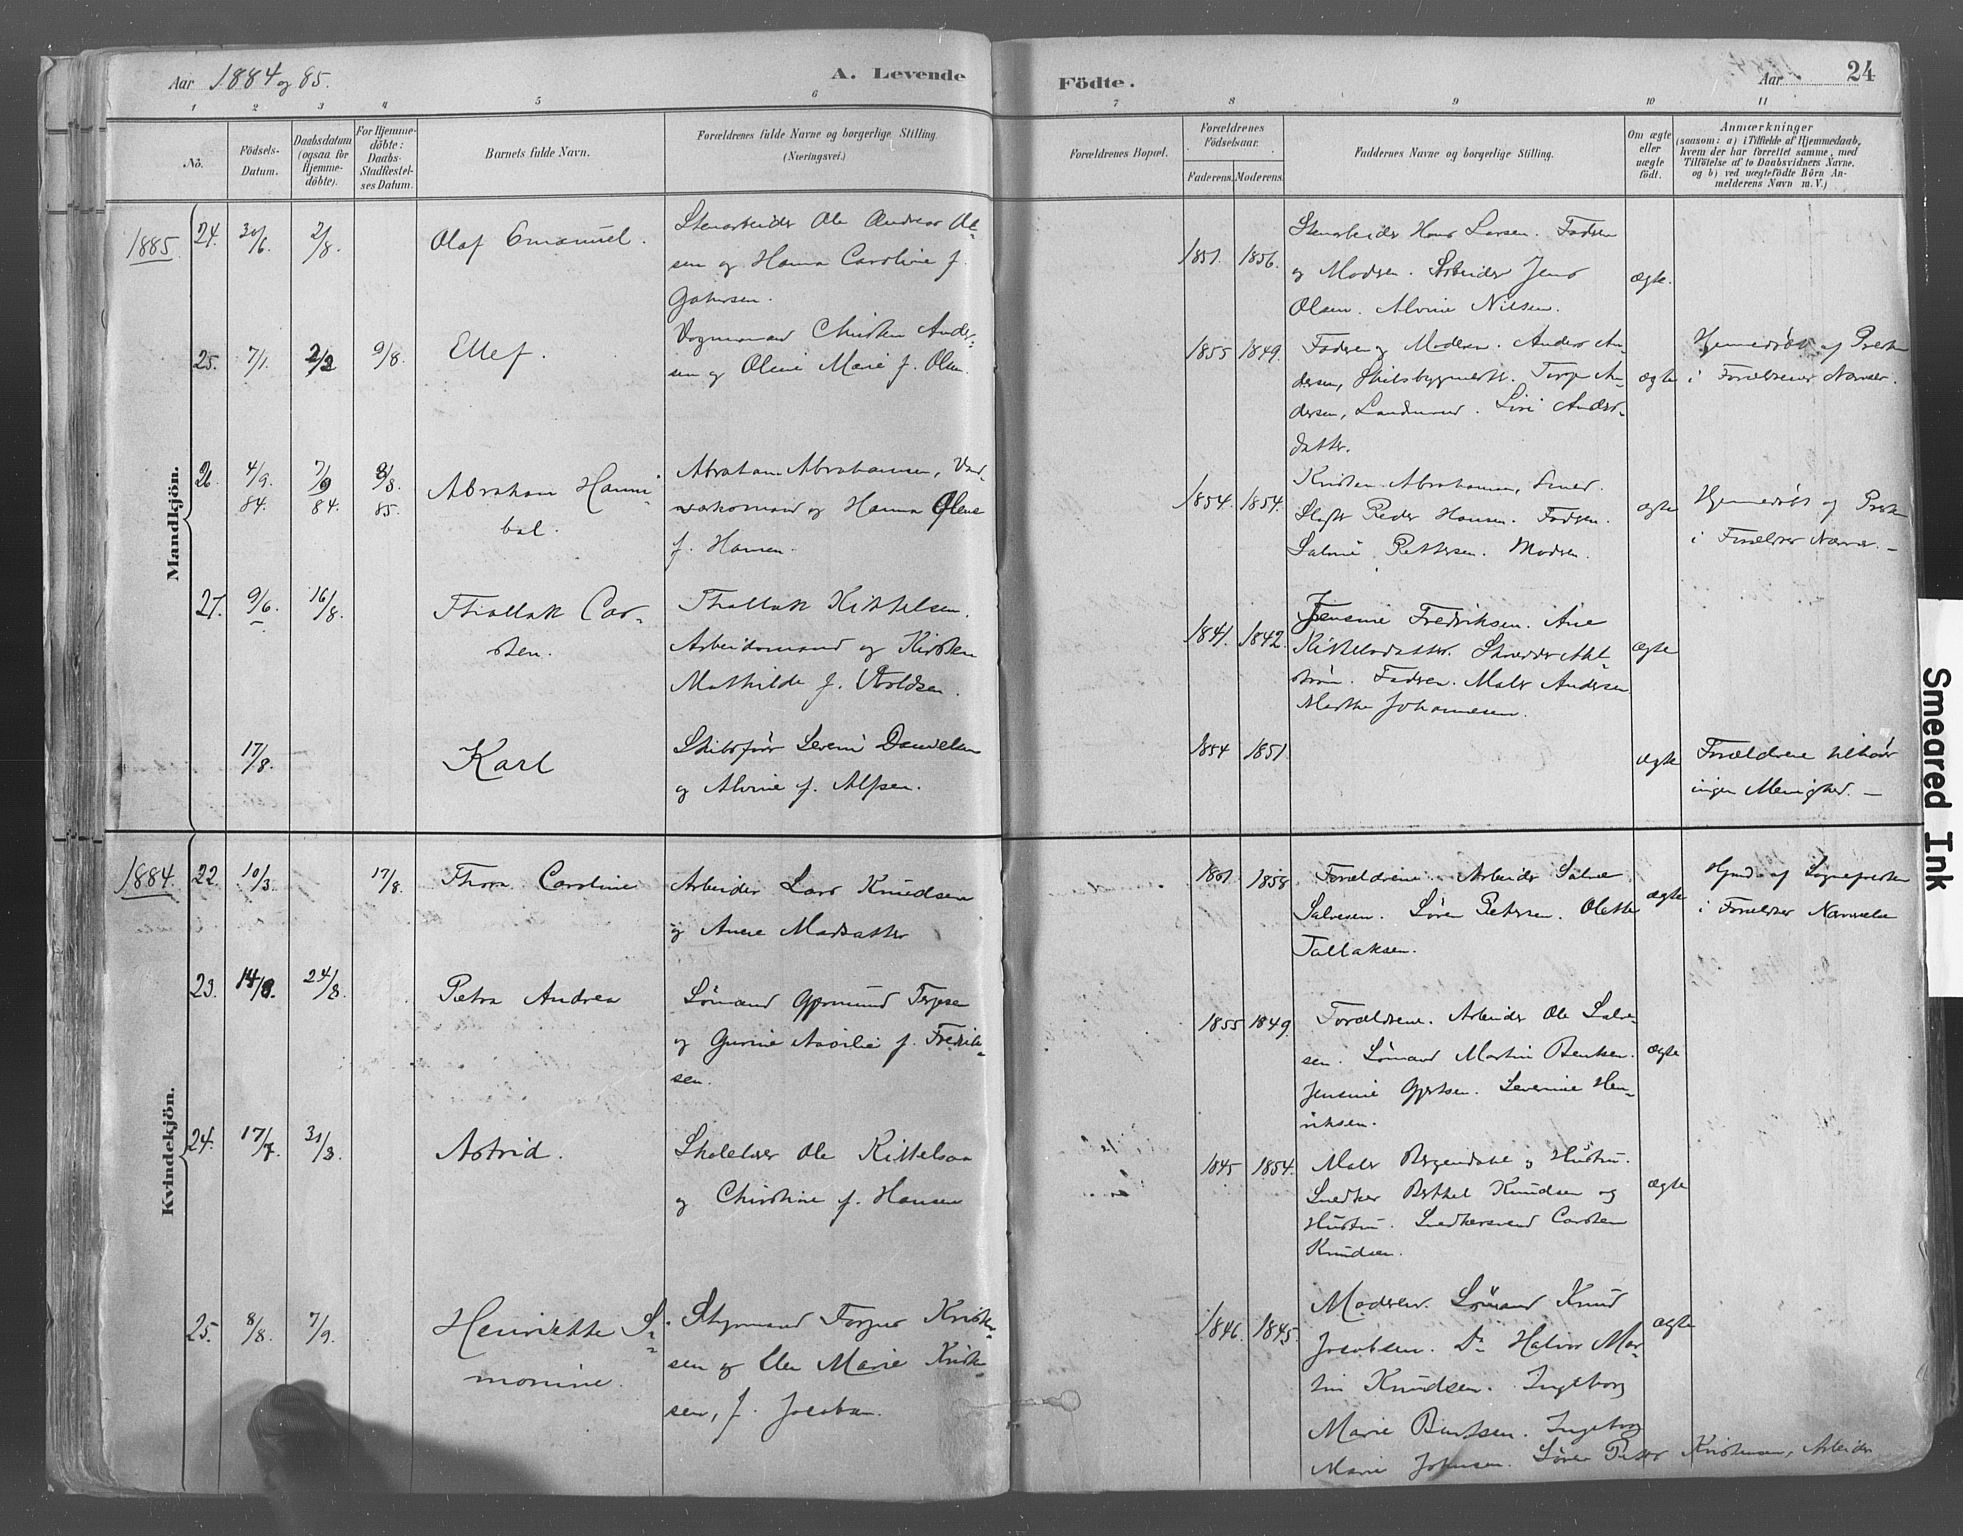 Aar 1884 og 85.
A. Levende
Födte.
Aar
24
1 2 3 4 5 6 7 8 9 10 11
No.
Födsels-
Datum.
Daabsdatum
(ogsaa for
Hjemme-
döbte).
For Hjemme-
döbte:
Daabs-
Stadfæstel-
ses Datum.
Barnets fulde Navn.
Forældrenes fulde Navne og borgerlige Stilling.
(Næringsvei.)
Forældrenes Bopæl.
Forældrenes
Födselsaar.
Faderens. Moderens.
Faddernes Navne og borgerlige Stilling.
Om ægte
eller
uægte
födt.
Anmærkninger
(saasom: a) i Tilfælde af Hjemmedaab,
hvem der har forrettet samme, med
Tilföielse af to Daabsvidners Navne,
og b) ved uægtefödte Börn An-
melderens Navn m. V.)
Mandkjön.
1885
24. 30/6. 2/8. Olaf Emanuel.
Stenarbeider Ole Andreas Ol-
sen og Hanna Caroline f.
1851. 1856.
Stenarbeider Hans Larsen. Fadren
og Modren. Arbeider Jens
Olsen. Alvine Nilsen.
ægte.
25. 7/1. 2/2 9/8. Ellef.
Vognmand Christen Ander-
sen og Oline Marie f. Olsen.
1855 1849.
Fadren og Modren. Anders An-
dersen, Skibsbygmestr. Terje An-
dersen, Landmand. Siri Anders-
datter.
ægte
Hjemmedøbt af Presten
i Forældrenes Nærvær.
26. 4/9. 84. 7/9 84. 9/8 85.
Abraham Hanni-
bal.
Abraham Abrahamsen, Vand-
værksmand og Hanna Oline
f. Hansen.
1854. 1854.
Kristen Abrahamsen, Smed.
Peder Hansen. Fadren.
Salvine Pettersen. Modren.
ægte
Hjemmedøbt af Presten
i Forældres Nærvær. —
27. 9/6. 16/8.
Thallak Car-
sten.
Thallak Kittelsen.
Arbeidsmand og Kirsten
Mathilde f.
1841. 1842.
Jensine Fredriksen. Ane
Kittelsdatter. Skrædder Ahl-
strøm. Fadren. Maler Andersen
Marthe Johannesen.
ægte
17/8. Karl
Skibsfører Severin Danielsen
og Alvine f. Alfsen.
1854 1851.
ægte
Forældrene tilhører
ingen Menighed. —
Kvindekjön.
1884.
22. 10/3. 17/8. Thora Caroline
Arbeider Lars Knudsen
og Anne Madsdatter
1858
Forældrene. Arbeider Salve
Salvesen. Søren Petersen. Olette
Tallaksen.
ægte
Hjmd. af Sognepresten
i Forældres Nærværelse
23. 14/8. 24/8. Petra Andrea
Sømand Gjermund Terjesen
og Gurine Aasilie f. Fredrik-
sen.
1855 1849.
Forældrene. Arbeider Ole Salve-
sen. Sømand Martin Bentsen.
Jensine Gjertsen. Severine Hen-
riksen.
ægte
24. 17/7. 31/8. Astrid.
Skolelærer Ole Kittelsen
og Christine f. Hansen
1845 1854.
Maler Bergendahl og Hustru.
Snedker Berthel Knudsen og
Hustru. Snedkersvend Carsten
Knudsen.
ægte
25. 8/8. 7/9.
Henriette Si-
monine.
Styrmand Torger Kristen-
sen og Else Marie Kristen-
sen, f. Jacobsen.
1846. 1845.
Modren. Sømand Knud
Jacobsen. Do Halvor Mar-
tin Knudsen. Ingeborg
Marie Berntsen. Ingeborg
Marie Johnsen. Søren Peter Kristensen, Arbeider
ægte
Smeared Ink